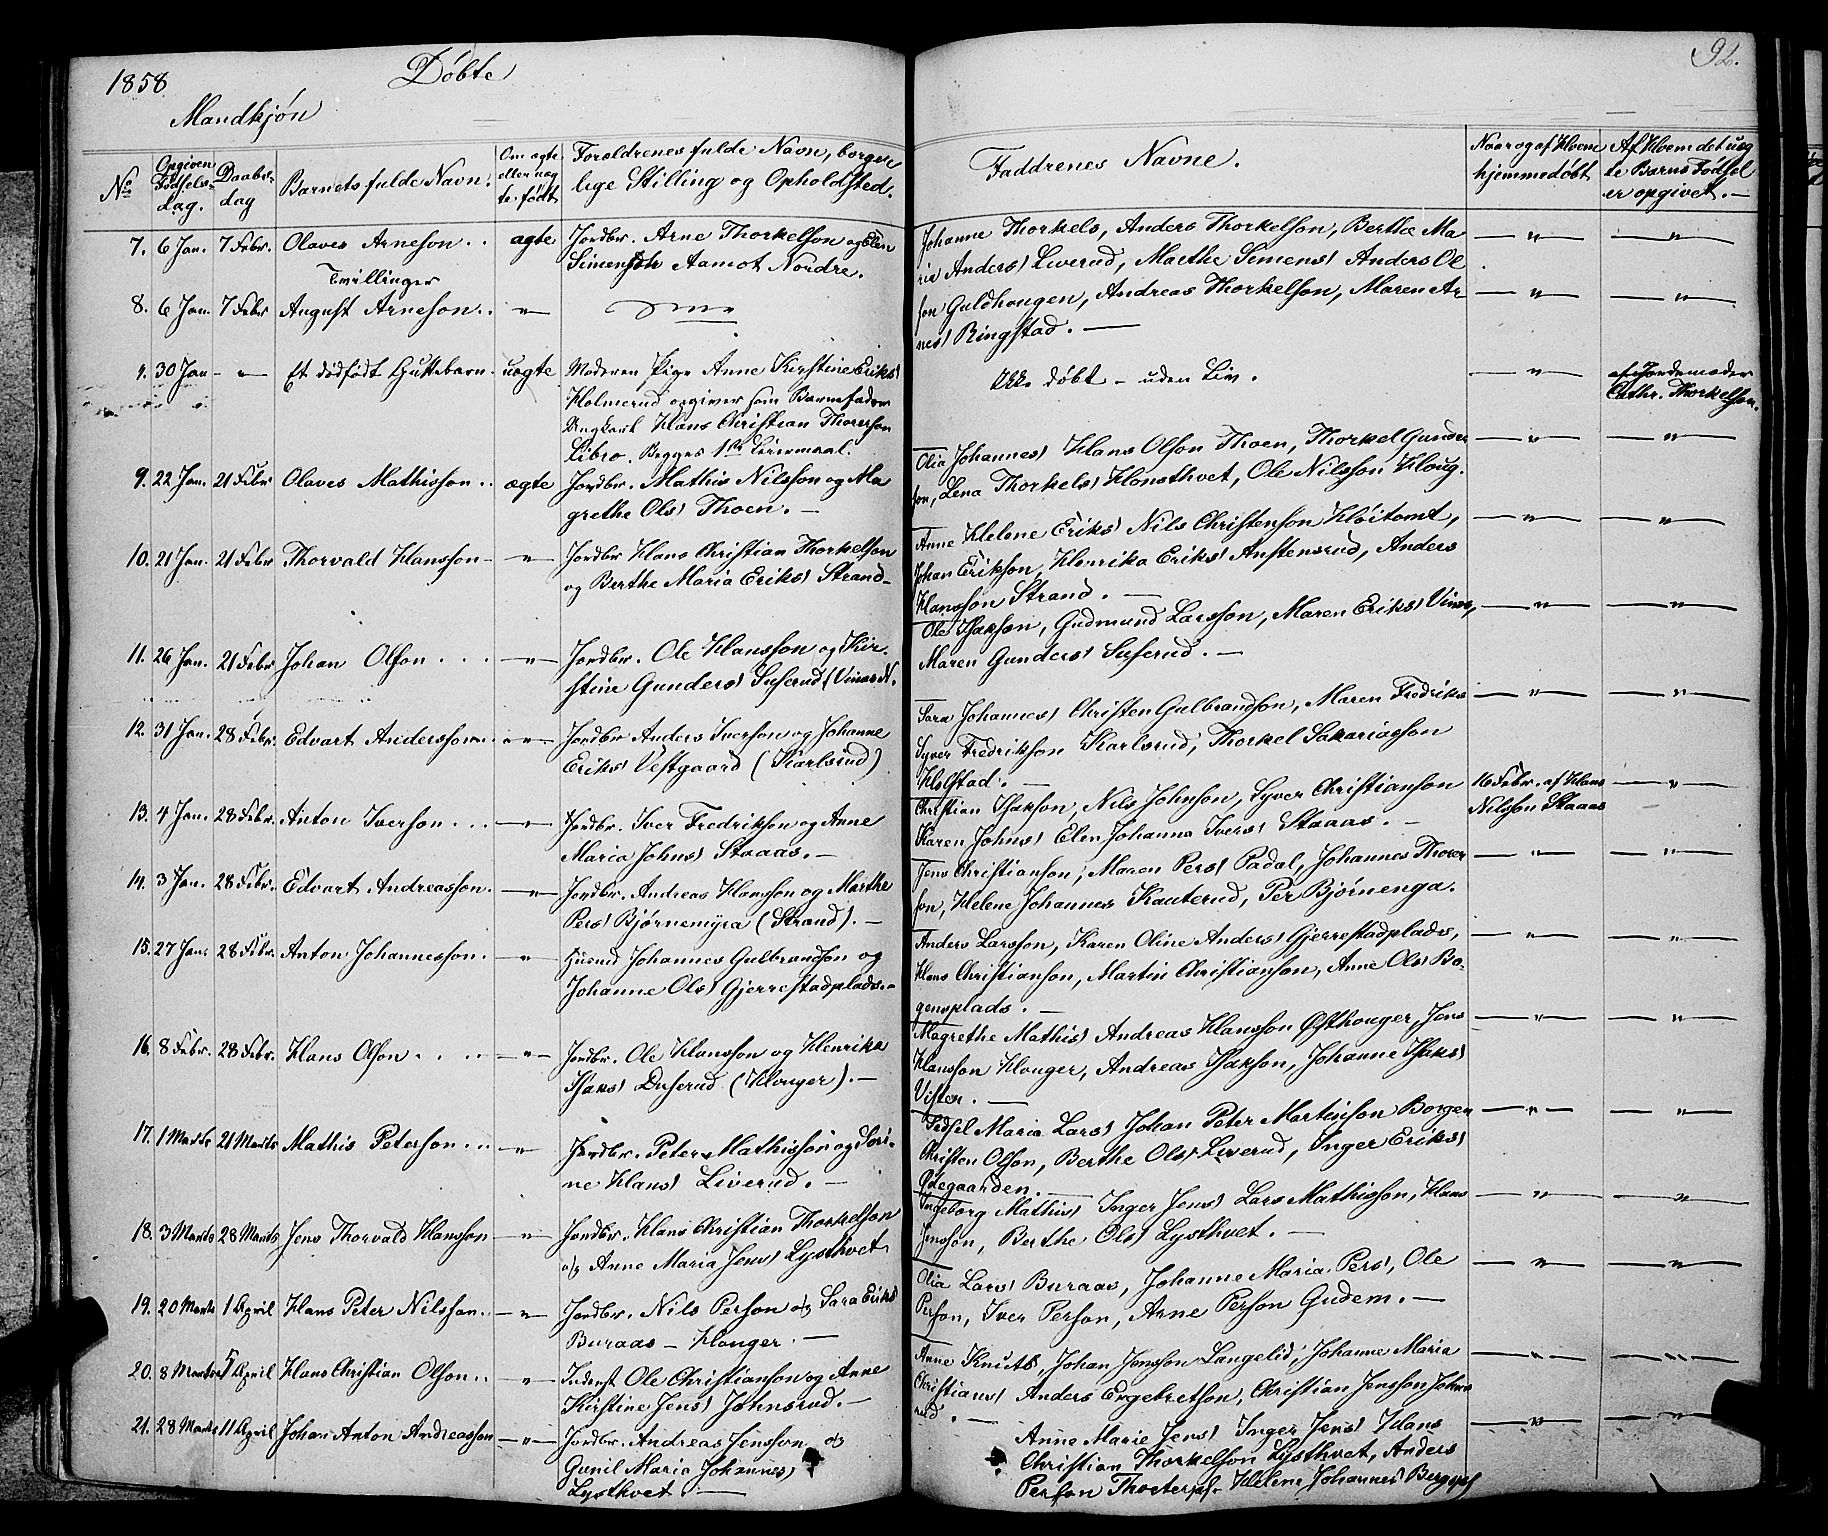 1858
Døbte
92.
Mandkjøn
No
Opgiven Fødsels-dag.
Daabs-dag
Barnets fulde Navn.
Om ægte eller uægte født
Forældrenes fulde Navn, borgerlige Stilling og Opholdsted.
Faddrenes Navne.
Naar og af Hvem hjemmedøbt
Af Hvem det uægte Barns Fødsel er opgivet. —
7. 6 Jan. 7 Febr. Olaves Arneson . . ægte Jordbr. Arne Thorkelson og Elen
Simensdr Aamot Nordre.
Tvillinger
Johanne Thorkels, Anders Thorkelson, Berthe Ma
rie Anders) Liverud, Marthe Simens) Anders Ol
son Guldhougen, Andreas Thorkelson, Maren Ar-
nes) Ringstad. —
8. 6 Jan. 7 Febr August Arneson . . — " —
9. 30 Jan — " — Et dødfødt Guttebarn. uægte Moderen Pige Anne Kirstine Eriks)
Holmerud opgiver som Barnefader
Ungkarl Hans Christian Thorerson
Libro. Begges 1ste Leiermaal.
Ikke døbt — uden Liv.
af Jordemoder
Cathr. Thorkelson.
9. 22 Jan. 21 Febr Olaves Mathisson . . ægte Jordbr. Mathis Nilsson og Ma
grethe Ols) Thoen. —
Olia Johannes) Hans Olson Thoen, Thorkel Gunder
son, Lena Thorkels) Honsthvet, Ole Nilsson Houg.
10. 21 Jan. 21 Febr Thorvald Hansson — " — Jordbr Hans Christian Thorkelson
og Berthe Maria Eriks) Strand—
Anne Helene Eriks) Nils Christenson Høitomt,
Johan Erikson, Henrika Eriks) Anstensrud, Anders
Hansson Strand. —
11. 26 Jan. 21 Febr Johan Olson . . . — " — Jordbr. Ole Hansson og Kir-
stine Gunders) Suserud (Vinas N.
Ole Isakson, Gudmund Larsson, Maren Eriks) Vinas,
Maren Gunders) Suserud. —
12. 31 Jan. 28 Febr. Edvart Andersson. — " — Jordbr Anders Iverson og Johanne
Eriks) Vestgaard (Karlsrud)
Sara Johannes) Christen Gulbrandson, Maren Fredriks
Syver Fredrikson Karlsrud, Thorkel Sakariasson
Holstad. —
13. 4 Jan. 28 Febr. Anton Iverson . . . — " — Jordbr. Iver Fredrikson og Anne
Maria Johns) Staaas. —
Christian Isakson, Nils Johnson, Syver Christianson
Karen Johns) Elen Johanna Ivers) Staaas. —
16 Febr. af Hans
Nilsson Staaas
14. 3 Jan. 28 Febr. Edvart Andreasson. — " — Jordbr. Andreas Hansson og Marthe
Pers) Bjørnemyra (Strand). —
Jens Christianson, Maren Pers) Padal, Johannes Thorer
son, Helene Johannes Kauterud, Per Bjørnenga.
15. 27 Jan. 28 Febr. Anton Johannesson. — " — Husmd Johannes Gulbrandson og
Johanne Ols) Gjerrestadplads. —
Anders Larsson, Karen Oline Anders) Gjerrestadplads,
Hans Christianson, Martin Christianson, Anne Ols) Bo-
gensplads. —
16. 8 Febr. 28 Febr. Hans Olson . . . . — " — Jordbr. Ole Hansson og Henrika
Isaks) Duserud (Houger). —
Magrethe Mathis) Andreas Hansson Østhouger, Jens
Hansson Houger, Andreas Isakson, Johanne Isaks)
Visten. —
17. 1 Marts 21 Marts Mathis Peterson . . . — " — Jordbr. Peter Mathisson og Sori-
ne Hans) Liverud. —
Sidsel Maria Lars) Johan Peter Martinson Borgen
Christen Olson, Berthe Ols) Liverud, Inger Eriks)
Ødegaarden. —
18. 3 Marts 28 Marts Jens Thorvald Hansson — " — Jordbr. Hans Christian Thorkelson
og Anne Maria Jens) Lysthvet
Ingeborg Mathis) Inger Jens) Lars Mathisson, Hans
Jensson, Berthe Ols) Lysthvet. —
19. 20 Marts 1 April Hans Peter Nilsson. . — " — Jordbr. Nils Person og Sara Eriks)
Buraas — Houger. —
Olia Lars) Buraas, Johanne Maria Pers), Ole
Person, Iver Person, Arne Person Gudem. —
20. 8 Marts 5 April Hans Christian Olson. . — " — Inderst Ole Christianson og Anne
Kirstine Jens) Johnsrud. —
Anne Knuts, Johan Jonsson Langelid, Johanne Maria
Christians) Anders Engebretson, Christian Jensson Johns
rud. —
21. 28 Marts 11 April Johan Anton Andreasson — " — Jordbr. Andreas Jensson og
Gunil Maria Johannes)
Lysthvet. —
Anne Marie Jens) Inger Jens) Hans
Christian Thorkelson Lysthvet, Anders
Person Thorterpf. Helene Johannes) Bergspl